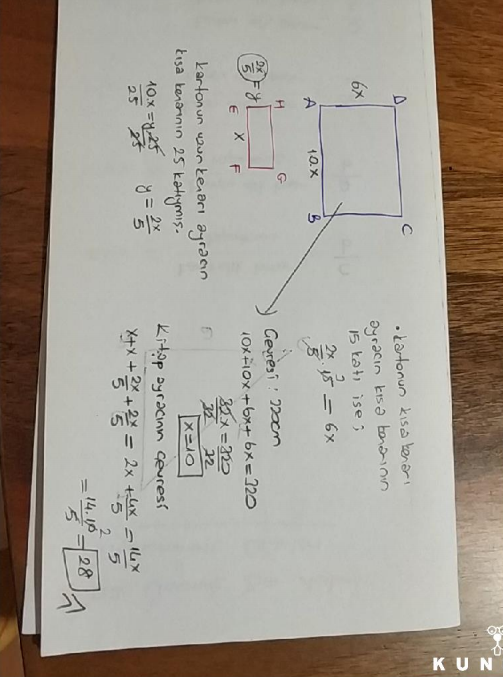 D
C
6x
A
10x
B
H
G
2x/5 = y
E
x
F
Kartonun uzun kenarı ayracın
kısa kenarının 25 katıymış.
10x/25 = y.25/25
y = 2x/5
• Kartonun kısa kenarı
ayracın kısa kenarının
15 katı ise;
2x/5 . 15 3 = 6x
Çevresi: 320cm
10x+10x+6x+6x=320
32x/32 = 320/32
x=10
Kitap ayracının çevresi
x+x+2x/5+2x/5 = 2x+4x/5 = 14x/5
= 14.10/5 2 = 28
KUN